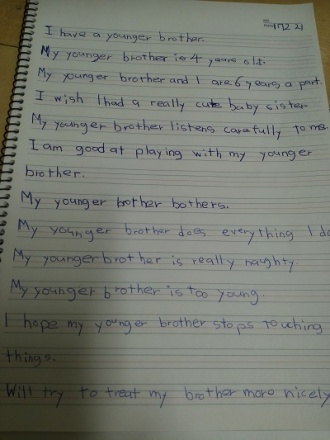 I have a younger brother.
My younger brother is 4 years old.
My younger brother and I are 6 years a part.
I wish I had a really cute baby sister
My younger brother listens carefully to me
I am good at playing with my younger
brother.
My younger brother bothers.
My younger brother does everything I do
My younger brother is really naughty.
My younger brother is too young.
I hope my younger brother stops touching
things.
Will try to treat my brother more nicely